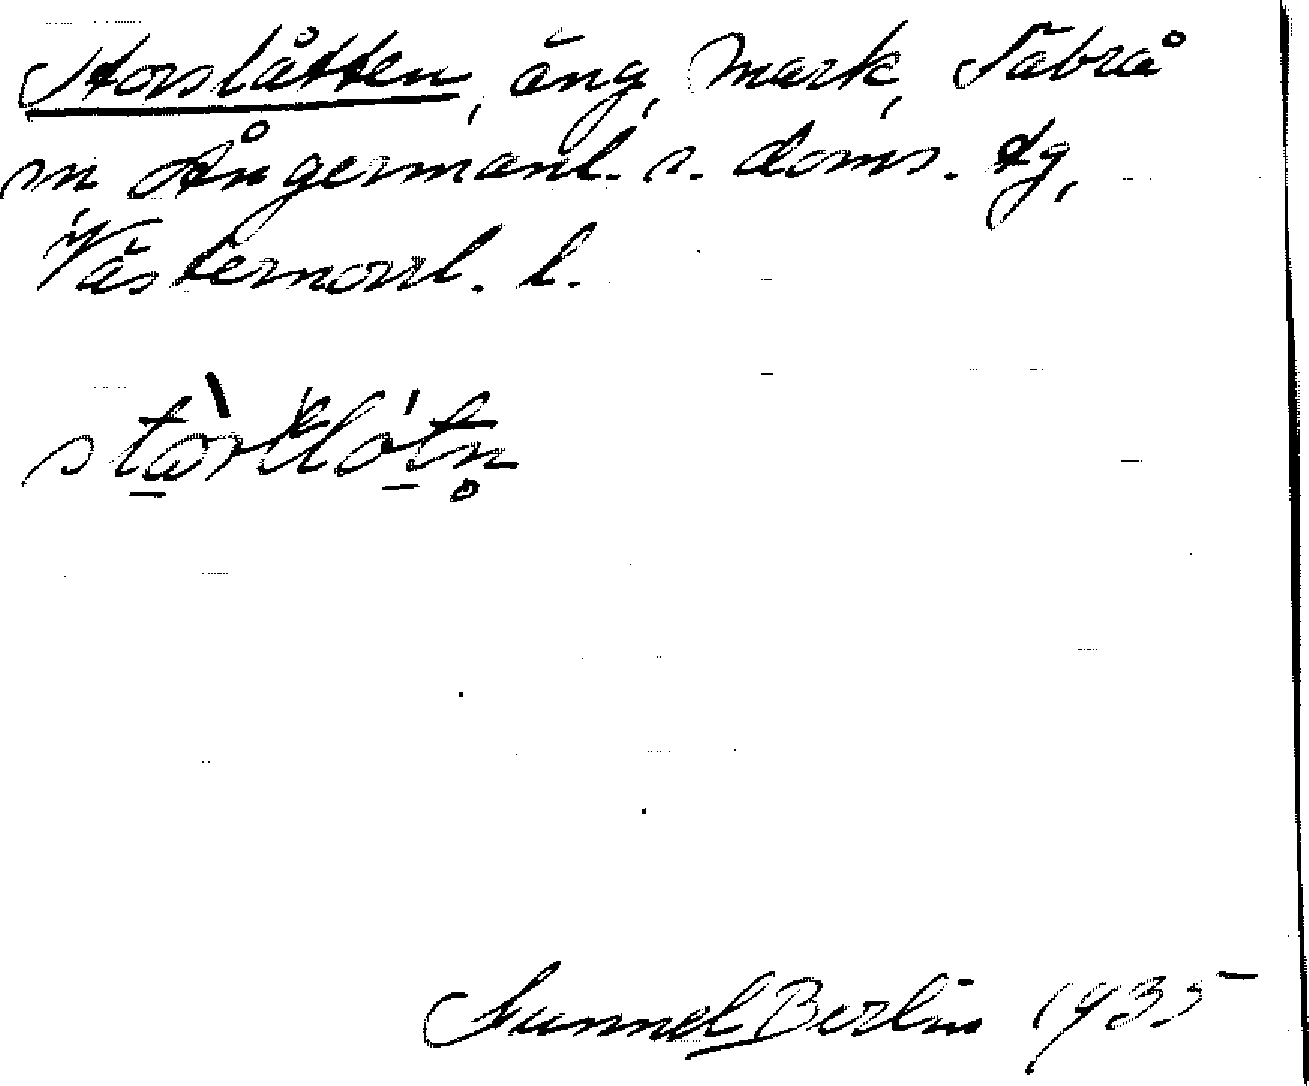 Storslåtten, äng, Mark, Säbrå
sn Ångermanl. s. doms. tg,
Västernorrl. l.
Gunnel Berlin 1935